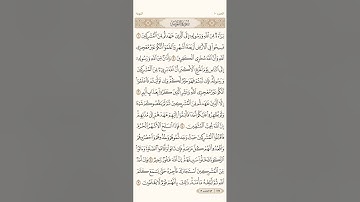 سُورَةُ التَّوْبَةِ
بَرَآءَةٌ مِّنَ ٱللَّهِ وَرَسُولِهِۦٓ إِلَى ٱلَّذِينَ عَٰهَدتُّم مِّنَ ٱلْمُشْرِكِينَ ١
فَسِيحُوا۟ فِى ٱلْأَرْضِ أَرْبَعَةَ أَشْهُرٍ وَٱعْلَمُوٓا۟ أَنَّكُمْ غَيْرُ مُعْجِزِى
ٱللَّهِ وَأَنَّ ٱللَّهَ مُخْزِى ٱلْكَٰفِرِينَ ٢ وَأَذَٰنٌ مِّنَ ٱللَّهِ وَرَسُولِهِۦٓ
إِلَى ٱلنَّاسِ يَوْمَ ٱلْحَجِّ ٱلْأَكْبَرِ أَنَّ ٱللَّهَ بَرِىٓءٌ مِّنَ ٱلْمُشْرِكِينَ
وَرَسُولُهُۥ فَإِن تُبْتُمْ فَهُوَ خَيْرٌ لَّكُمْ وَإِن تَوَلَّيْتُمْ فَٱعْلَمُوٓا۟
أَنَّكُمْ غَيْرُ مُعْجِزِى ٱللَّهِ وَبَشِّرِ ٱلَّذِينَ كَفَرُوا۟ بِعَذَابٍ أَلِيمٍ ٣
إِلَّا ٱلَّذِينَ عَٰهَدتُّم مِّنَ ٱلْمُشْرِكِينَ ثُمَّ لَمْ يَنقُصُوكُمْ شَيْـًٔا
وَلَمْ يُظَٰهِرُوا۟ عَلَيْكُمْ أَحَدًا فَأَتِمُّوٓا۟ إِلَيْهِمْ عَهْدَهُمْ إِلَىٰ مُدَّتِهِمْ
إِنَّ ٱللَّهَ يُحِبُّ ٱلْمُتَّقِينَ ٤ فَإِذَا ٱنسَلَخَ ٱلْأَشْهُرُ ٱلْحُرُمُ
فَٱقْتُلُوا۟ ٱلْمُشْرِكِينَ حَيْثُ وَجَدتُّمُوهُمْ وَخُذُوهُمْ
وَٱحْصُرُوهُمْ وَٱقْعُدُوا۟ لَهُمْ كُلَّ مَرْصَدٍ فَإِن تَابُوا۟ وَأَقَامُوا۟
ٱلصَّلَوٰةَ وَءَاتَوُا۟ ٱلزَّكَوٰةَ فَخَلُّوا۟ سَبِيلَهُمْ إِنَّ ٱللَّهَ غَفُورٌ رَّحِيمٌ ٥
وَإِنْ أَحَدٌ مِّنَ ٱلْمُشْرِكِينَ ٱسْتَجَارَكَ فَأَجِرْهُ حَتَّىٰ يَسْمَعَ كَلَٰمَ
ٱللَّهِ ثُمَّ أَبْلِغْهُ مَأْمَنَهُۥ ذَٰلِكَ بِأَنَّهُمْ قَوْمٌ لَّا يَعْلَمُونَ ٦